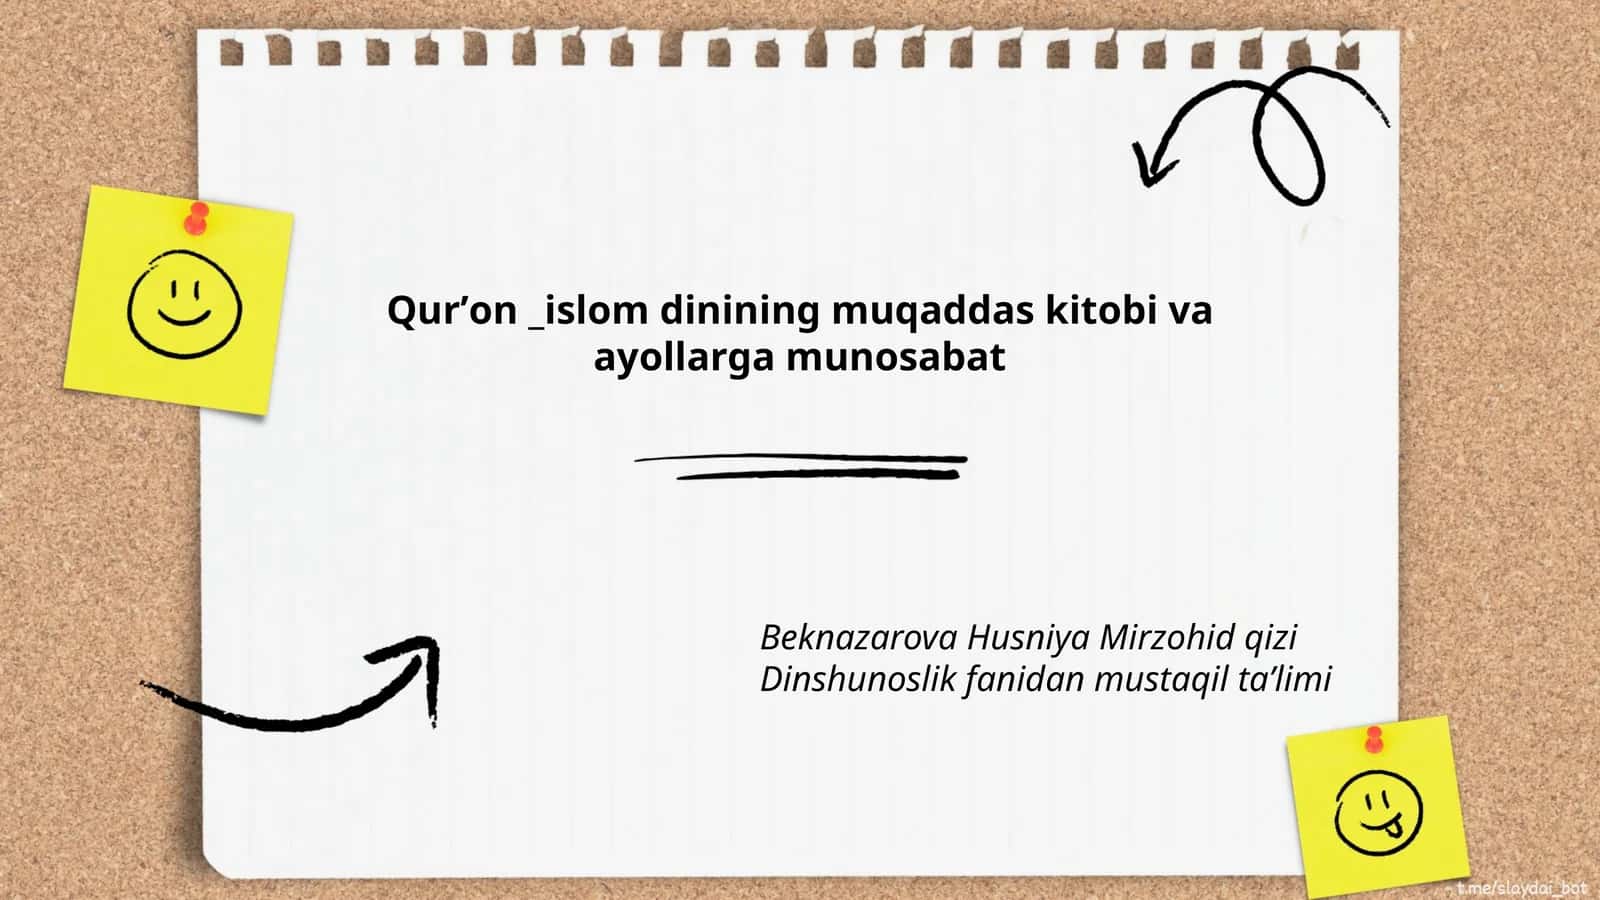 Qur’on _islom dinining muqaddas kitobi va
ayollarga munosabat
Beknazarova Husniya Mirzohid qizi
Dinshunoslik fanidan mustaqil ta’limi
t.me/slaydai_bot